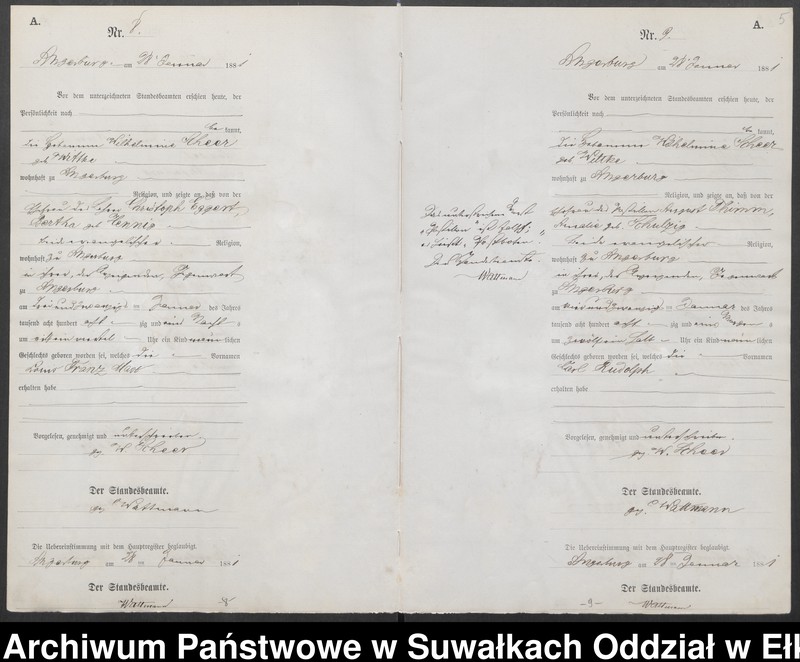 A.
Nr. 8.
Angerburg am 28 Januar 1881
Vor dem unterzeichneten Standesbeamten erschien heute, der
Persönlichkeit nach
kannt,
die Hebamme Wilhelmine Scheer
geb Wittke
wohnhaft zu Angerburg
Religion, und zeigte an, daß von der
Ehefrau des Christoph Eggert,
Bertha geb Hennig
beide evangelischer Religion,
wohnhaft zu Angerburg
in ihrer, der Gegenwart
zu Angerburg
am dreiundzwanzigsten Januar des Jahres
tausend acht hundert acht zig und eins Nachts
um Uhr ein Kind männlichen
Geschlechts geboren worden sei, welches die Vornamen
Franz Max
erhalten habe
Vorgelesen, genehmigt und unterschrieben
gez W. Scheer
Der Standesbeamte.
gez Wattmann
Die Uebereinstimmung mit dem Hauptregister beglaubigt.
Angerburg am 28 Januar 1881
Der Standesbeamte.
Wattmann
-8-
A.
5
Nr. 9.
Angerburg am 28 Januar 1881
Vor dem unterzeichneten Standesbeamten erschien heute, der
Persönlichkeit nach
kannt,
die Hebamme Wilhelmine Scheer
geb Wittke
wohnhaft zu Angerburg
Religion, und zeigte an, daß von der
Ehefrau des August Thimm,
Amalie geb. Schulzig
beide evangelischer Religion,
wohnhaft zu Angerburg
in ihrer, der Gegenwart
zu Angerburg
am vierundzwanzigsten Januar des Jahres
tausend acht hundert acht zig und eins
um zwölf ein halb Uhr ein Kind männlichen
Geschlechts geboren worden sei, welches die Vornamen
Carl Rudolph
erhalten habe
Vorgelesen, genehmigt und unterschrieben.
gez W. Scheer
Der Standesbeamte.
gez. Wattmann
Die Uebereinstimmung mit dem Hauptregister beglaubigt.
Angerburg am 28 Januar 1881
Der Standesbeamte.
Wattmann
-9-
Der Standesbeamte.
Wattmann
Archiwum Państwowe w Suwałkach Oddział w Ełk